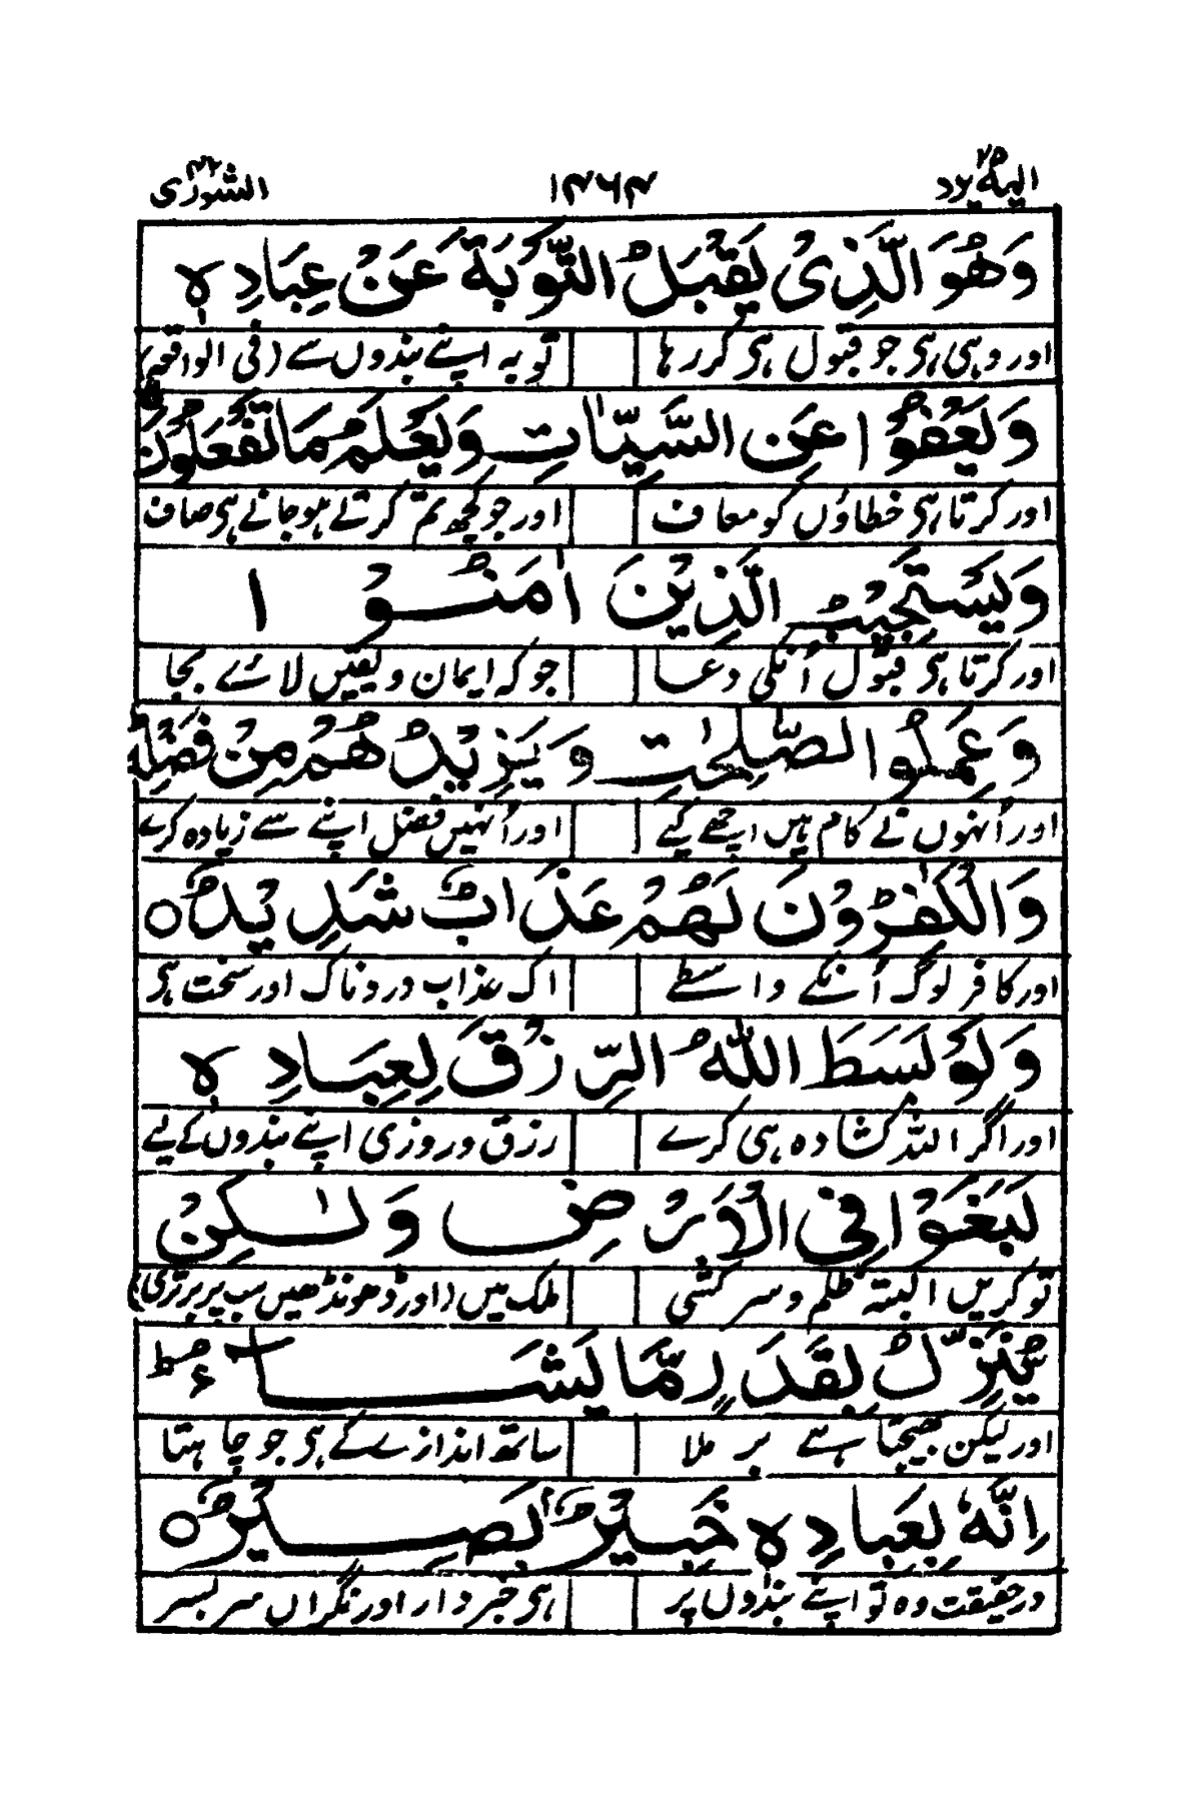 الیہ یرد ۲۵ ۱۴۶۴ الشورٰی ۴۲
وَهُوَ الَّذِیْ یَقْبَلُ التَّوْبَةَ عَنْ عِبَادِهٖ
اور وہی ہی جو قبول ہی کر رہا توبہ اپنے بندوں سے (فی الواقعہ)
وَیَعْفُوْا عَنِ السَّیِّاٰتِ وَیَعْلَمُ مَا تَفْعَلُوْنَ
اور کرتا ہی خطاؤں کو معاف اور جو کچھ تم کرتے ہو جانے ہی صاف
وَیَسْتَجِیْبُ الَّذِیْنَ اٰمَنُوْا
اور کرتا ہی قبول اُنکی دعا جو کہ ایمان و یقیں لائے بجا
وَعَمِلُوا الصّٰلِحٰتِ وَیَزِیْدُهُمْ مِنْ فَضْلِهٖ
اور اُنہوں نے کام ہیں اچھے کیے اور اُنہیں فضل اپنے سے زیادہ کرے
وَالْكٰفِرُوْنَ لَهُمْ عَذَابٌ شَدِیْدٌ○
اور کافر لوگ اُنکے واسطے اک عذاب دردناک اور سخت ہی
وَلَوْ بَسَطَ اللّٰهُ الرِّزْقَ لِعِبَادِهٖ
اور اگر اللہ کشادہ ہی کرے رزق و روزی اپنے بندوں کے لیے
لَبَغَوْا فِی الْاَرْضِ وَلٰكِنْ
تو کریں البتہ ظلم و سرکشی ملک میں (اور ڈھونڈھیں سب پر برتری)
یُّنَزِّلُ بِقَدَرٍ مَّا یَشَآءُ ط
اور لیکن بھیجتا ہے بر ملا ساتھ اندازے کے ہی جو چاہتا
اِنَّهٗ بِعِبَادِهٖ خَبِیْرٌۢ بَصِیْرٌ○
درحقیقت وہ تو اپنے بندوں پر ہی خبردار اور نگراں سر بسر